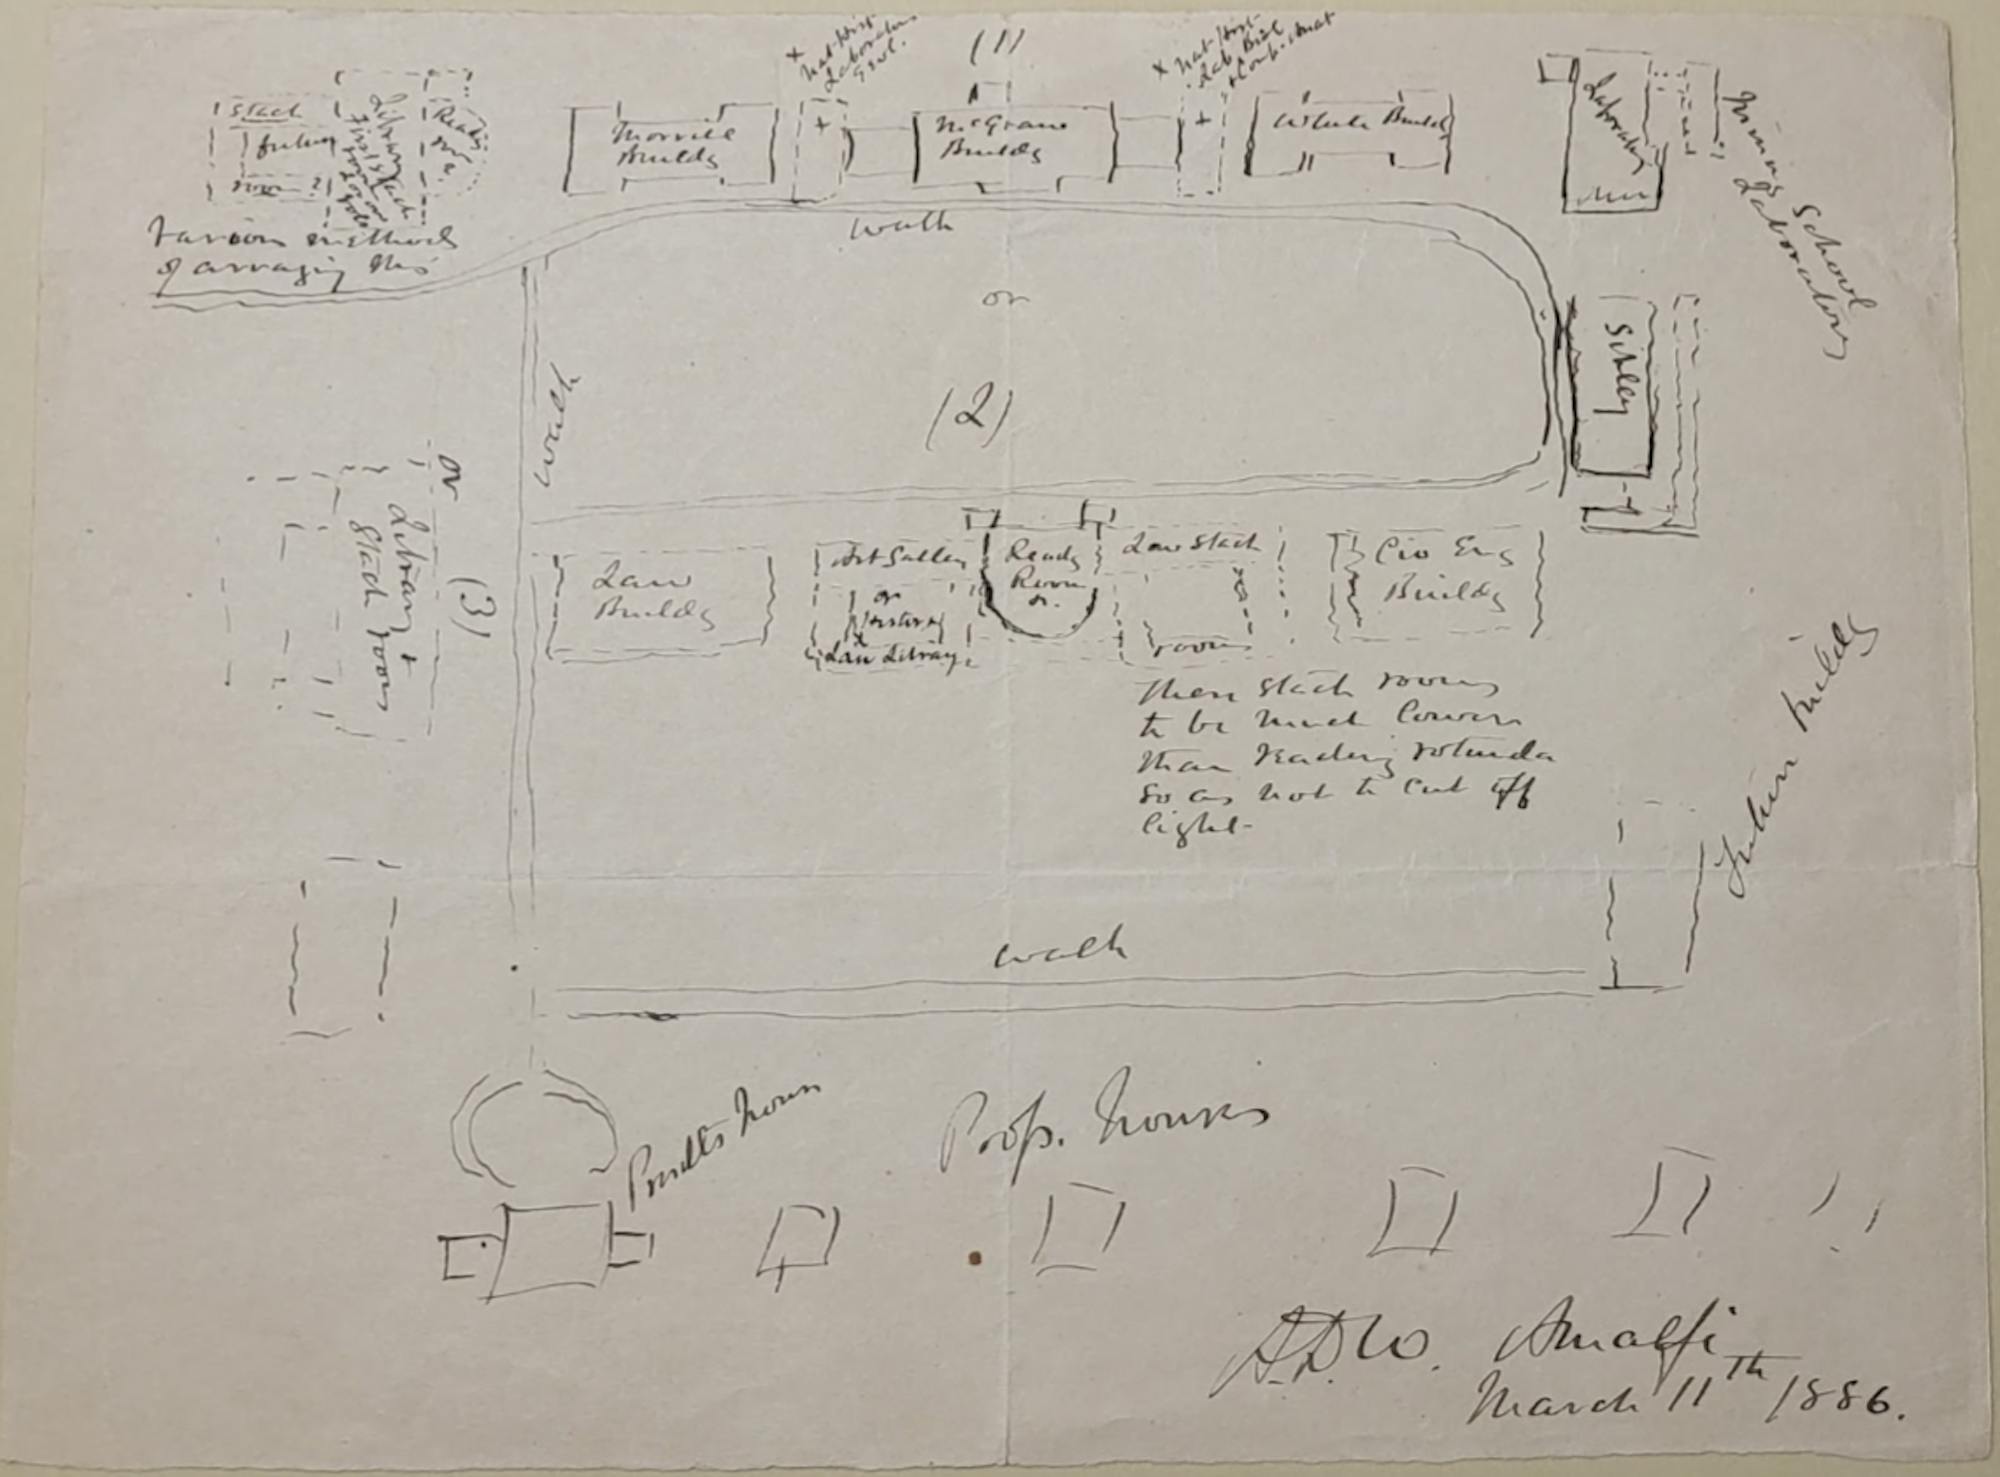 x Nat-Hist-
Laboratories
Geol.
(1)
x Nat-Hist-
Lab Biol
+ Comp. Anat
Stack
future
room ?
Library
first stack
room
Reading
Morrill
Buildg
+
McGraw
Buildg
+
White Buildg
Laboratory
Mining School
Laboratory
Various methods
of arranging this
walk
or
(2)
walk
Sibley
or
(3)
Library +
Stack rooms
Law
Buildg
Art Gallery
or
History
x
Law Library
Readg
Room
or
Low Stack
rooms
Civ Eng
Buildg
These stack rooms
to be much lower
than reading rotunda
so as not to cut off
light-
Future buildg
walk
Presdts house
Profs. houses
A.D.W. Amalfi
March 11th 1886.